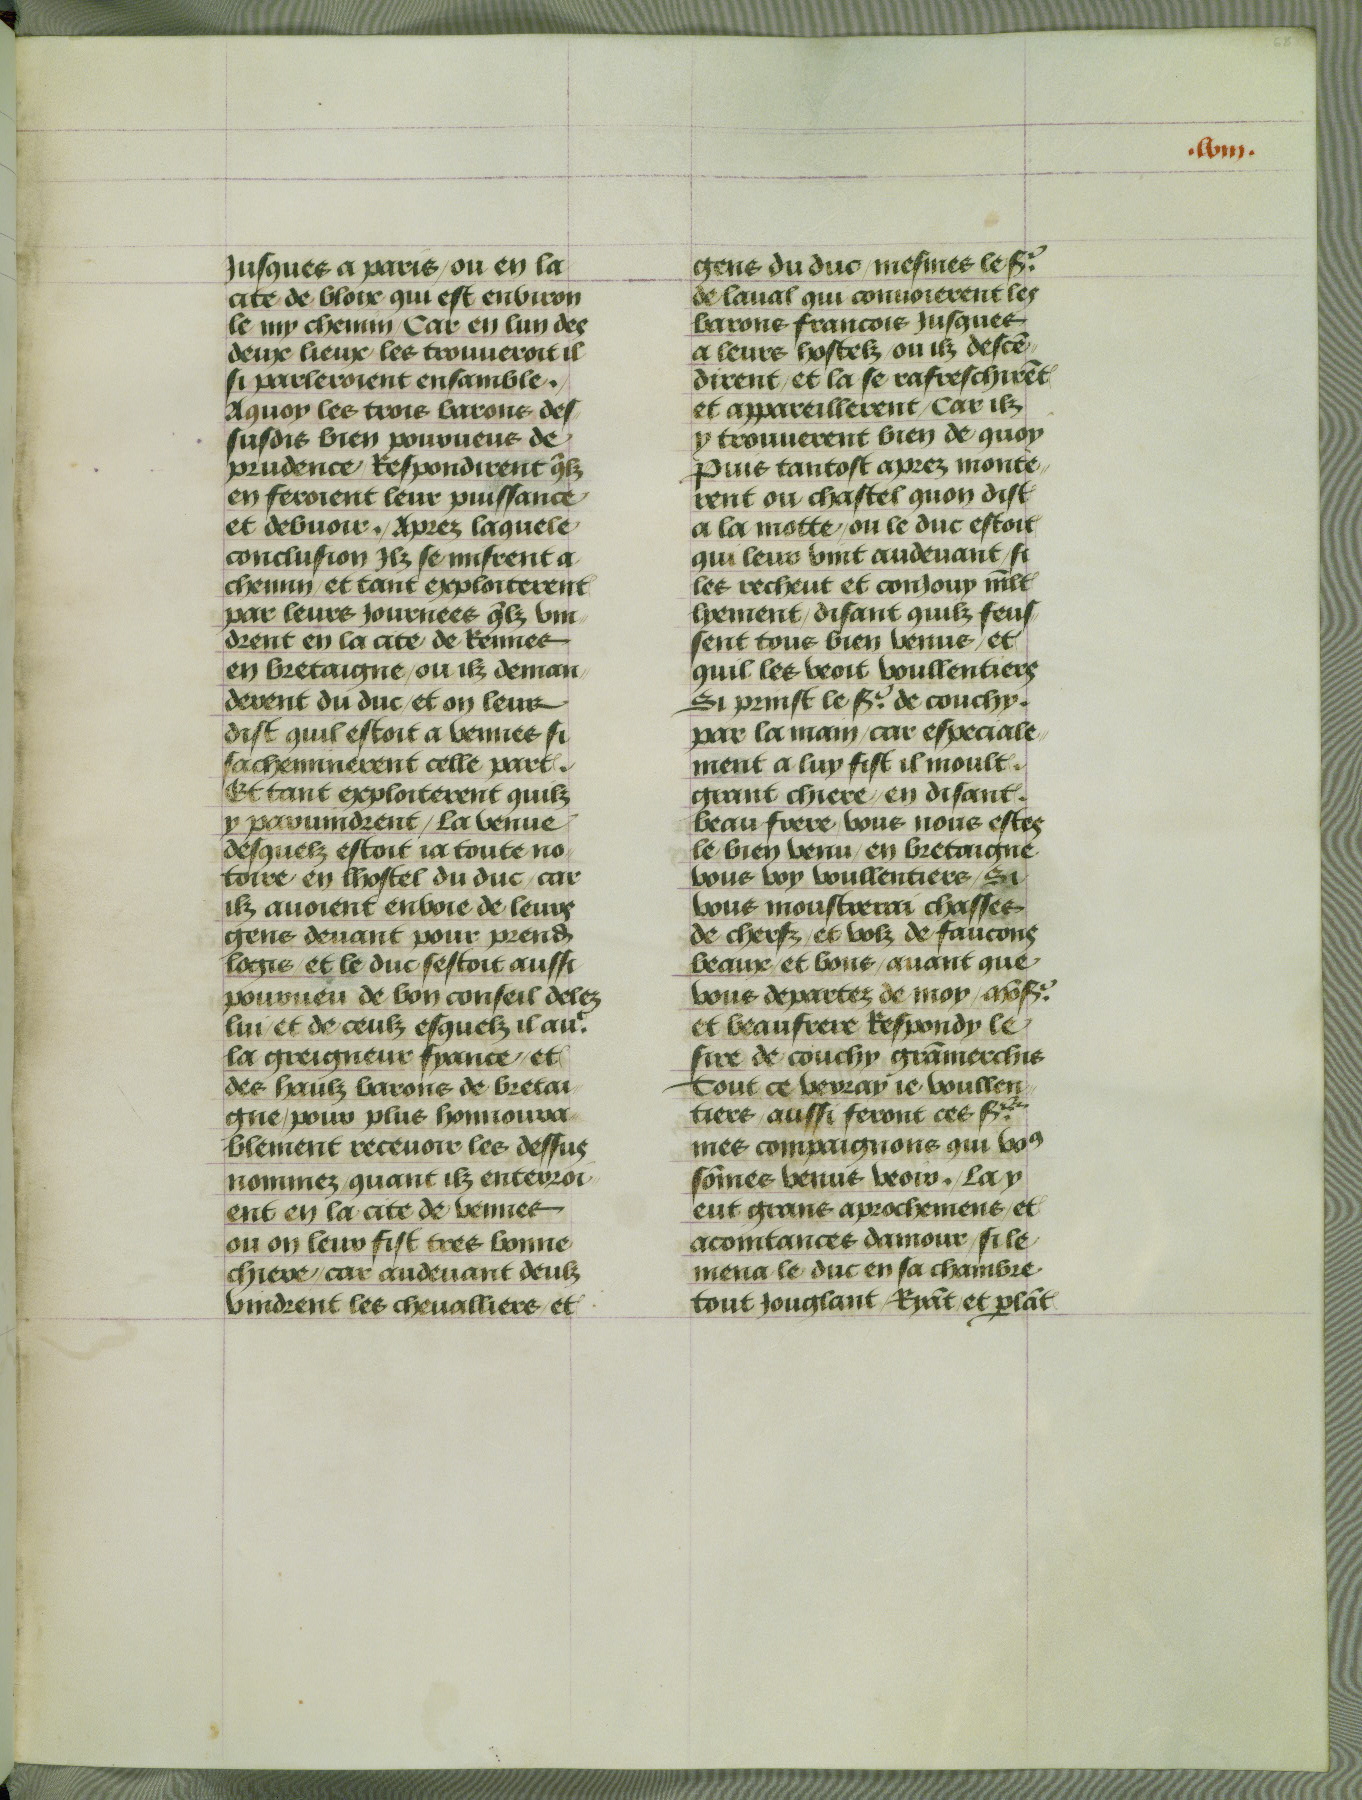 .lviii.
Jusques a paris / ou en la
cite de bloix qui est environ
le my chemin Car en lun des
deux lieux les trouueroit il
si parleroient ensamble .
Aquoy les trois barons des
susdis bien pourueus de
prudence Respondirent qͥlz
en feroient leur puissance
et debuoir . Aprez laquele
conclusion Jlz se misrent a
chemin / et tant exploiterent
par leurs Journees qͥlz vin
drent en la cite de Rennes
en bretaigne / ou ilz deman
derent du duc / et on leur
dist quil estoit a vennes si
sacheminerent celle part .
Et tant exploiterent quilz
y paruindrent / La venue
desquelz estoit ia toute no
toire en lhostel du duc / car
ilz auoient enuoie de leurs
gens deuant pour prendr̃
logis / et le duc sestoit aussi
pourueu de bon conseil delez
lui / et de ceulz esquelz il auͬ.
la greigneur fyance / et
des haulz barons de bretai
gne / pour plus honnoura
blement receuoir les dessus
nommez / quant ilz enterroi
ent en la cite de vennes
ou on leur fist tres bonne
chiere / car audeuant deulz
vindrent les cheualliers / et
gens du duc / mesmes le Sͬ.
de laual qui conuoierent les
barons francois Jusques
a leurs hostelz / ou ilz descẽ
dirent / et la se rafreschirẽt
et appareillerent / Car ilz
y trouuerent bien de quoy
Puis tantost aprez monte
rent ou chastel quon dist
a la motte / ou le duc estoit
qui leur vint audeuant / si
les recheut et conJouy ml̃t
lyement / disant quilz feus
sent tous bien venus / et
quil les veoit voullentiers
Si prinst le Sͬ. de couchy .
par la main / car especiale
ment a luy fist il moult .
grant chiere / en disant .
beau frere vous nous estes
le bien venu / en bretaigne
vous voy voullentiers / Si
vous moustrerai chasses
de cherfz / et volz de faucons
beaux et bons / auant que
vous departez de moy / Mõ Sͬ.
et beaufrere Respondy le
sire de couchy grãmerchis
Tout ce verray ie voullen
tiers / aussi feront ces Sͬˢ.
mes compaignons qui voꝰ
sõmes venus veoir . / La y
eut grans aprochemens / et
acointances damour / si le
mena le duc en sa chambre
tout Jouglant / Ryãt / et ꝑlãt